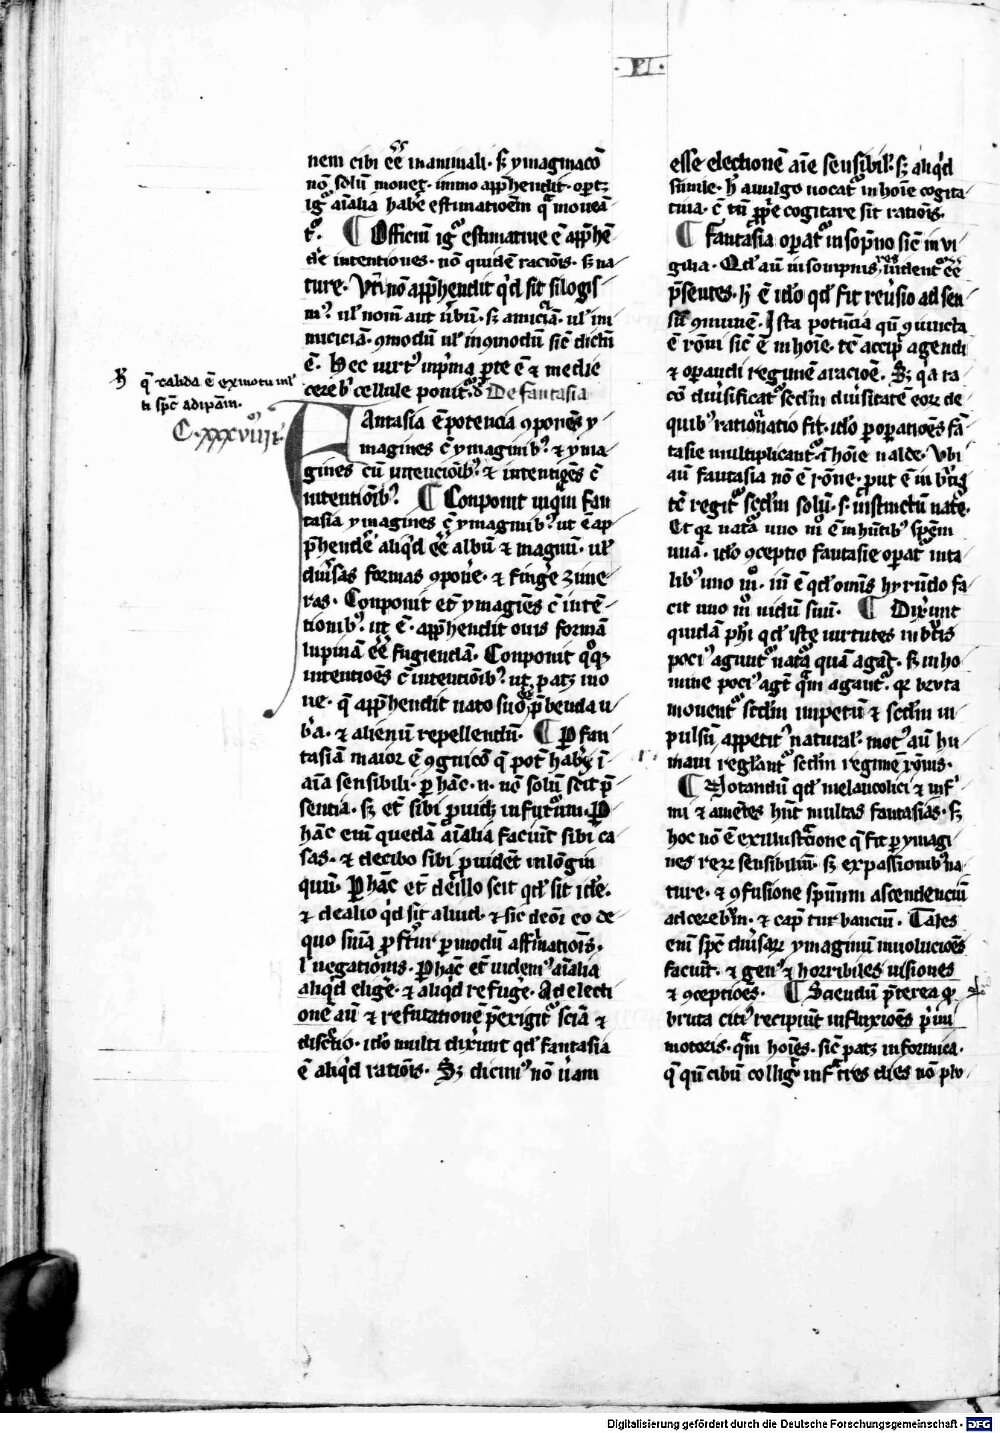 · VI ·
nem cibi ēē in animali · sꝫ ymaginacō
nō solū mouet · immo app̄hendit · oportꝫ
igͥ aīalia habē estimatioēm qͣ mouean
tͬ · ¶ Officiū igͥ estimatiue ē app̄hē
de intentiones · nō quidē racōis · sꝫ na
ture · Vn̄ nō app̄hendit qͥd sit silogis
mꝰ · ul' nomē aut ūbū · sꝫ amiciā · ul' in
imiciciā · ꝯmodū ul' inꝯmodū sic̄ dictū
ē · Hec uirtꝰ in p̄ma parte ē & medie
cerebͥ cellule ponitͬ De fantasia
FAntasia ē potencia ꝯponēs y
magines c̄ ymaginibꝰ · & yma
gines cū intencioībꝰ · & intentiōes c̄
intentioībꝰ · ¶ Conponit inqͣm fan
tasia ymagines c̄ ymaginibꝰ · ut ē ap
p̄hendē aliqͥd ēē albū & magnū · ul'
diūsas formas ꝯponē · & fingē zime
ras · Conponit et̄ ymagiēs c̄ intē
tionibꝰ · ut ē · app̄hendit ouis formā
lupinā ēē fugiendā · Conponit qͦqꝫ
intentioēs c̄ intentioībꝰ · ut patꝫ in o
ue · q̄ app̄hendit nato suo p̄benda u
b̄a · & alienū repellendū · ¶ P fan
tasiam maior ē ꝯgnicō q̄ pōt habͥ ī
aīa sensibili · ꝑ hāc · n · nō solū scit p̄
sentia · sꝫ et̄ sibi ꝓuidꝫ in futurum · P
hāc enī quedā aīalia faciūt sibi ca
sas · & decibo sibi ꝓuidēt in lōgin
quū · P hāc et̄ de illo scit qd' sit idē ·
& de alio qͥd sit aliud · & sic deōi eo de
quo sniā ꝓfertur ꝑ modū affirmatiōis ·
l' negatiōnis · P hāc et̄ uidemꝰ aīalia
aliqͥd eligē · & aliqͥd refugē · Ad electi
onē aū & refutationē p̄exigitͬ sciā &
discretio · idō multi dixerūt qd' fantasia
ē aliqͥd ratiōis · Sꝫ dicimꝰ nō ūam
ꝶ q̄ calida ē ex motu ml'
ti spc̄ adipām ·
C · xxxviiij ·
esse electionē aīe sensibil' · sꝫ aliqͥd
simile · h' a uulgo uocatͬ in hoīe cogita
tiua · c̄ tn̄ ꝓprie cogitare sit ratiōis ·
¶ Fantasia operatͬ in sopno sic̄ in vi
gilia · Qd' aū in sompnis res uident ēē
p̄sentes · h' ē idō qd' fit reūsio ad sen
sū ꝯmunē · Ista potn̄cia qn̄ ꝯiuncta
ē rōni sic̄ ē in hoīe · tc̄ accipͥ agendi
& operandi regimē a racioē · Sꝫ q a ra
cō diūsificatͬ scd'm diūsitatē eorꝫ de
quibꝰ ratiōnatio fit · idō ꝑ operatioēs fā
tasie multiplicantͬ ī hoīe ualde · Vbi
aū fantasia nō ē rōne · put ē in bͬtis
tc̄ regitͬ scd'm solū · s · īstinctū natē ·
Et qꝛ natͣa uno mͦ ē in hn̄tibꝰ speēm
unā · idō ꝯceptio fantasie operatͬ in ta
libꝰ uno mͦ · in̄ ē qd' omīs hyrūdo fa
cit uno mͦ nidū suū · ¶ Dixerunt
quidā phi qd' iste uirtutes in bͬtis
pociꝰ agunt natͣa quā agatͬ · sꝫ in ho
mine pociꝰ agtͬ qͣm agantͬ · qꝛ bruta
mouentͬ scd'm inpetū & scd'm in
pulsū appetitꝰ natural' · motꝰ aū hu
mani reglantͬ scd'm regimē rōnis ·
¶ Notandū qd' melancolici & infir
mi & amētes hn̄t multas fantasias · sꝫ
hoc nō ē ex illustͣcione q̄ fit ꝑ ymagi
nes rerꝫ sensibiliū · sꝫ ex passionibꝰ na
ture · & ꝯfusione spūum ascendenciū
ad cerebrum · & capͥ turbanciū · Tales
enī spc̄ diūsarꝫ ymaginū inuolucioēs
faciūt · & genꝰ & horribiles uisiones
& ꝯceptioēs · ¶ Sciendū p̄terea qꝛ
bruta citiꝰ recipiūt influxioēs p̄imi
motoris · qͣm hoīes · sic̄ patꝫ in formica ·
q̄ qn̄ cibū colligͥt infͣ tres dies nō plu
Digitalisierung gefördert durch die Deutsche Forschungsgemeinschaft · DFG